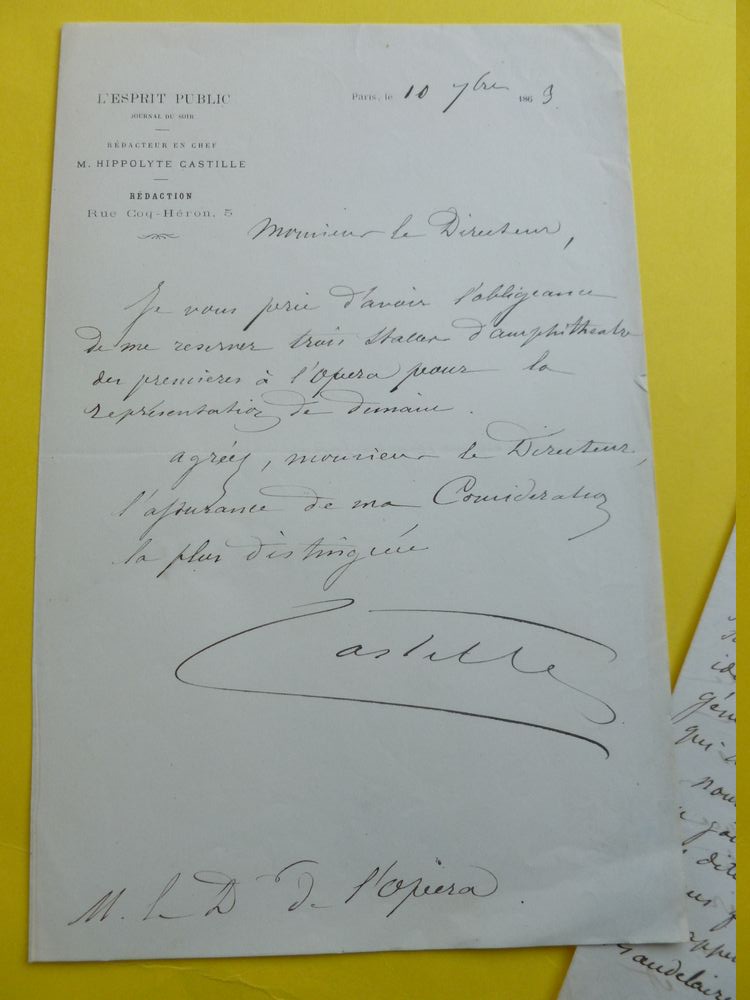 L'ESPRIT PUBLIC
JOURNAL DU SOIR
RÉDACTEUR EN CHEF
M. HIPPOLYTE CASTILLE
RÉDACTION
Rue Coq-Héron, 5
Paris, le 10 7bre 1863
Monsieur le Directeur,
Je vous prie d'avoir l'obligeance
de me reserver trois stalles d'amphitheatre
des premieres à l'opera pour la
représentation de demain.
agréez, monsieur le Directeur,
l'assurance de ma Consideration
la plus distinguée
Castille
M. le Dr de l'opéra.
qui